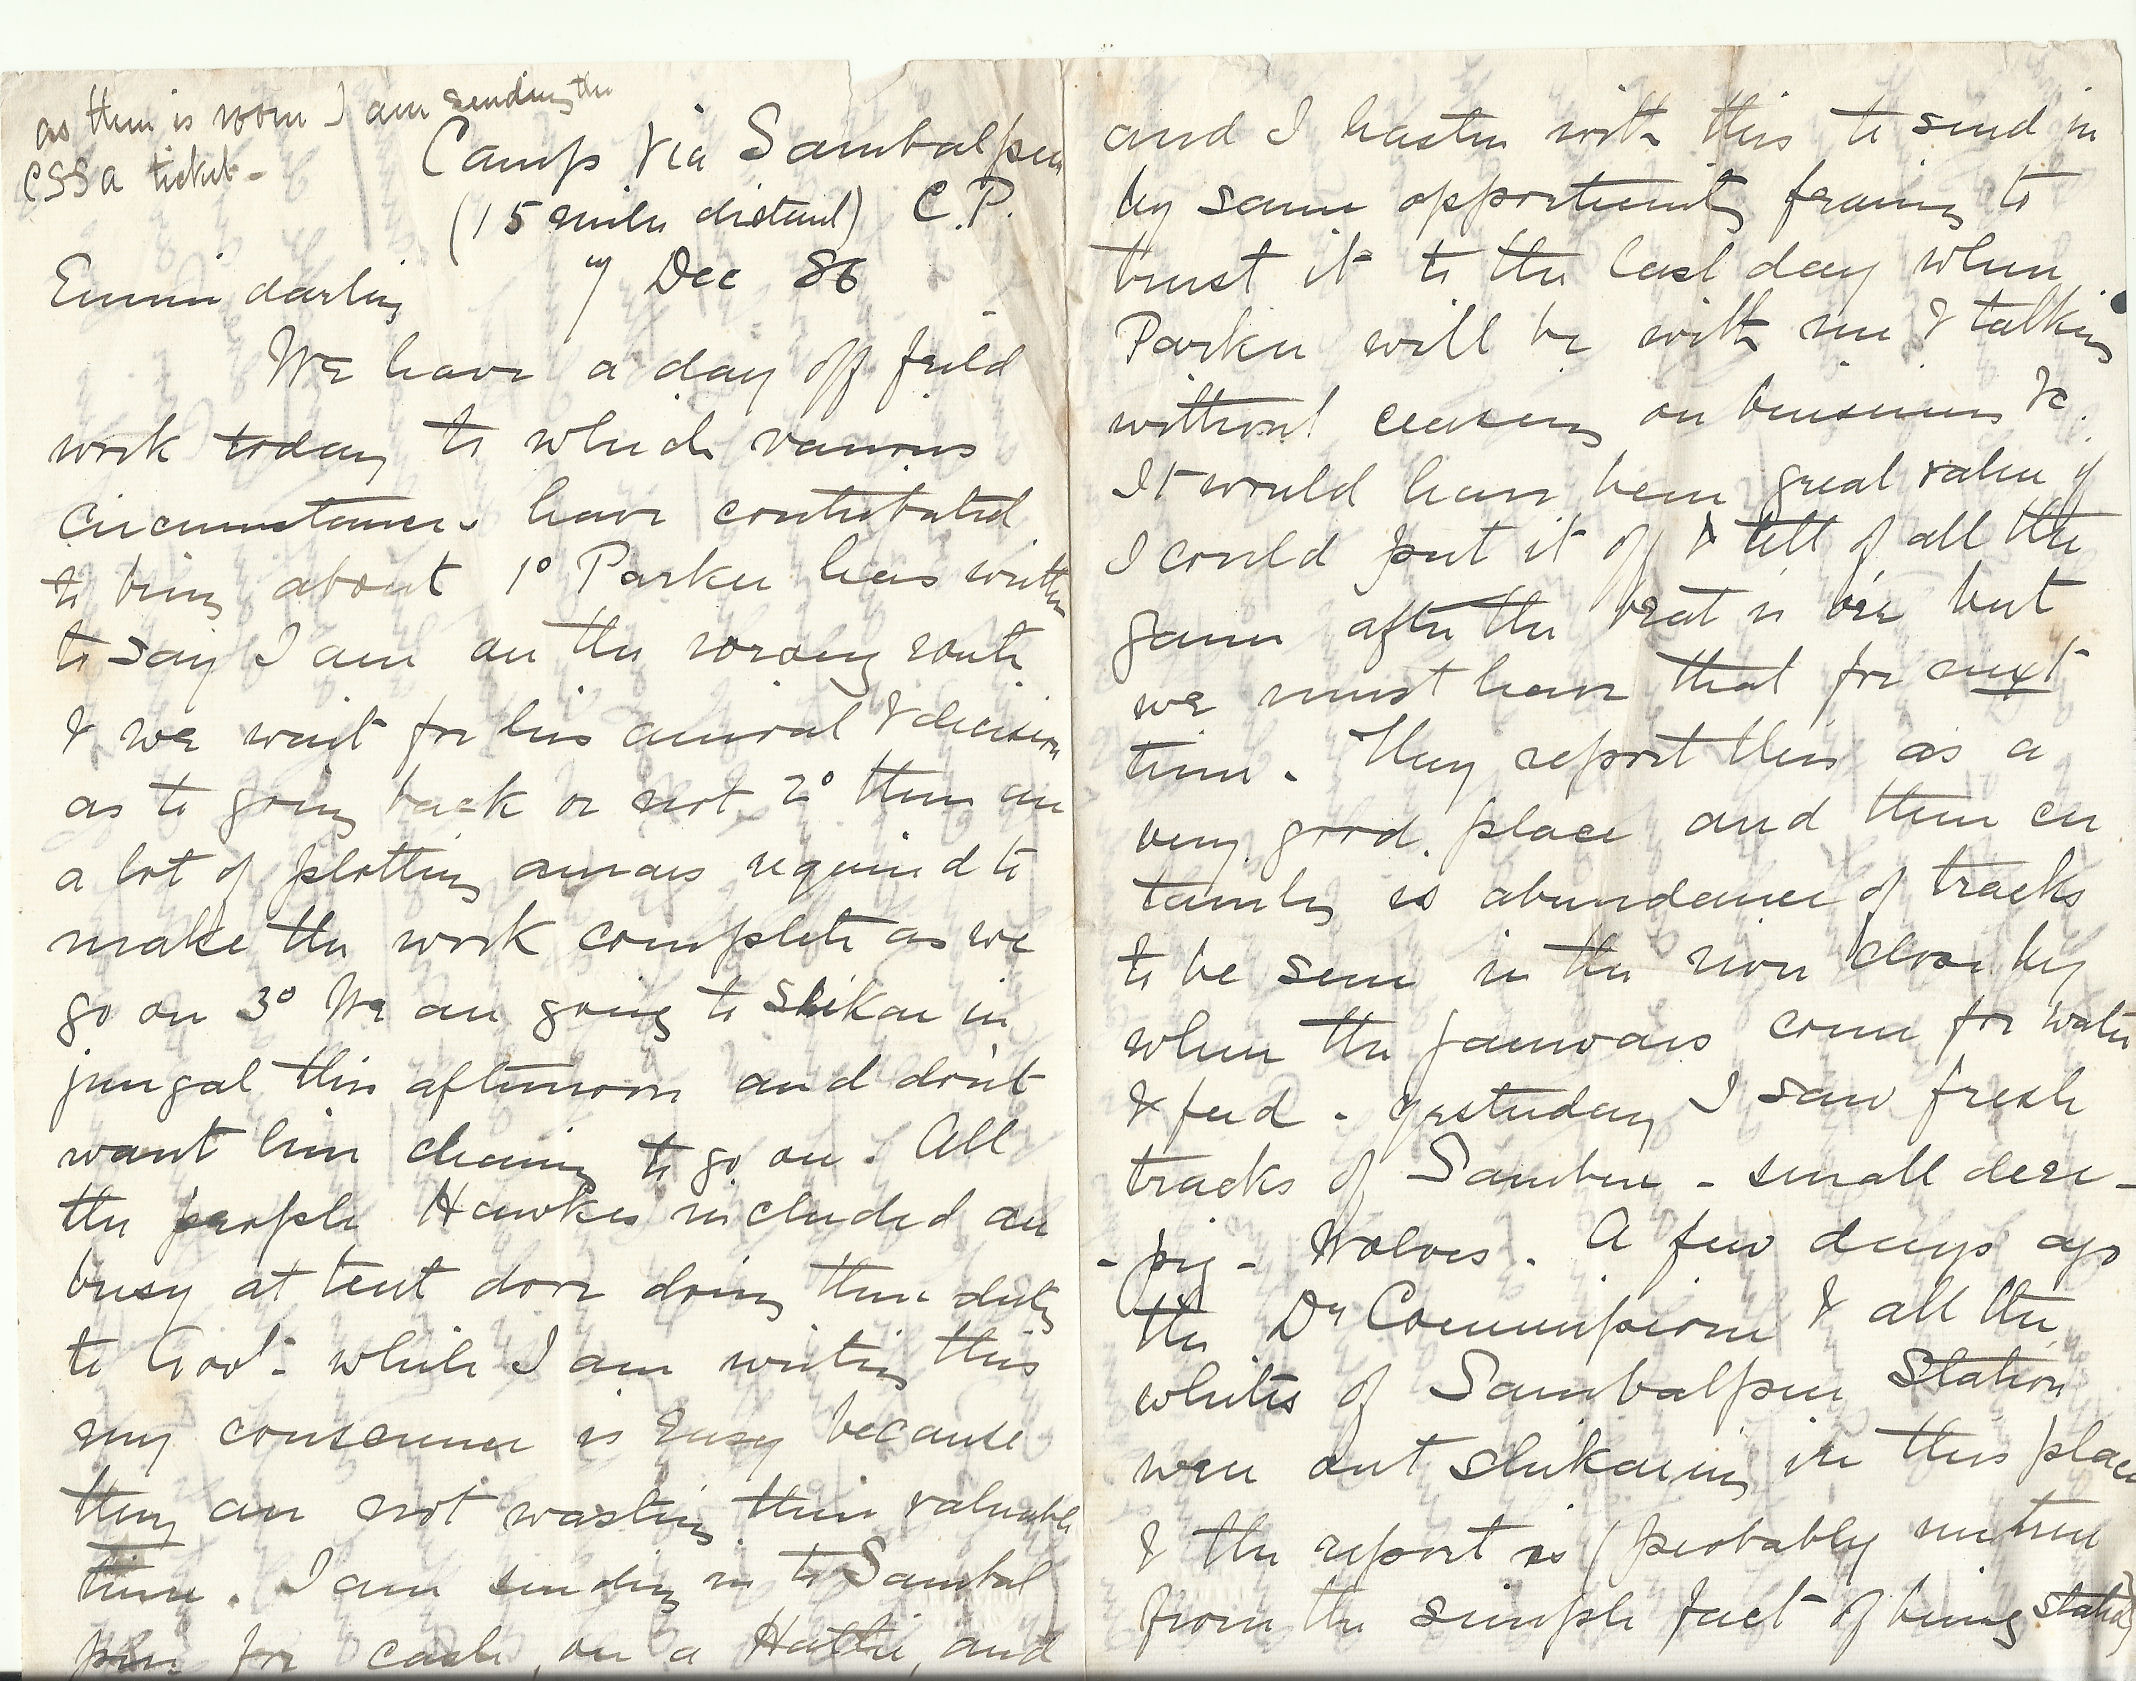 as there is room I am sending the
CSSA ticket -
Camp via Sambalpur
(15 miles distant) C.P.
7 Dec 86
Emmie darling
We have a day off feild
work today to which various
circumstances have contributed
to bring about 1º Parker has written
to say I am on the wrong route
& we wait for his arrival & decision
as to going back or not 2º there are
a lot of plotting arrears required to
make the work complete as we
go on 3º We are going to Shikar in
jungal this afternoon and don't
want him chaining to go on. All
the people Hawkes included are
busy at tent door doing their duty
to God - while I am writing this
my conscience is easy because
they are not wasting their valuable
time. I am sending in to Sambal
pur for cash, on a Hathi, and
and I hasten with this to send in
by same opportunity fearing to
trust it to the last day when
Parker will be with me & talking
without ceasing on business &c.
It would have been great value if
I could put it off & tell of all the
game after the beat is o'er but
we must have that for next
time. They report this as a
very good place and there cer
tainly is abundance of tracks
to be seen in the river close by
where the janwars come for water
& feed - yesterday I saw fresh
tracks of Sambur - small deer -
- pig - Wolves. A few days ago
the Dy Commissioner & all the
whites of Sambalpur Station
were out shikaring in this place
& the report is (probably untrue
from the simple fact of being stated)